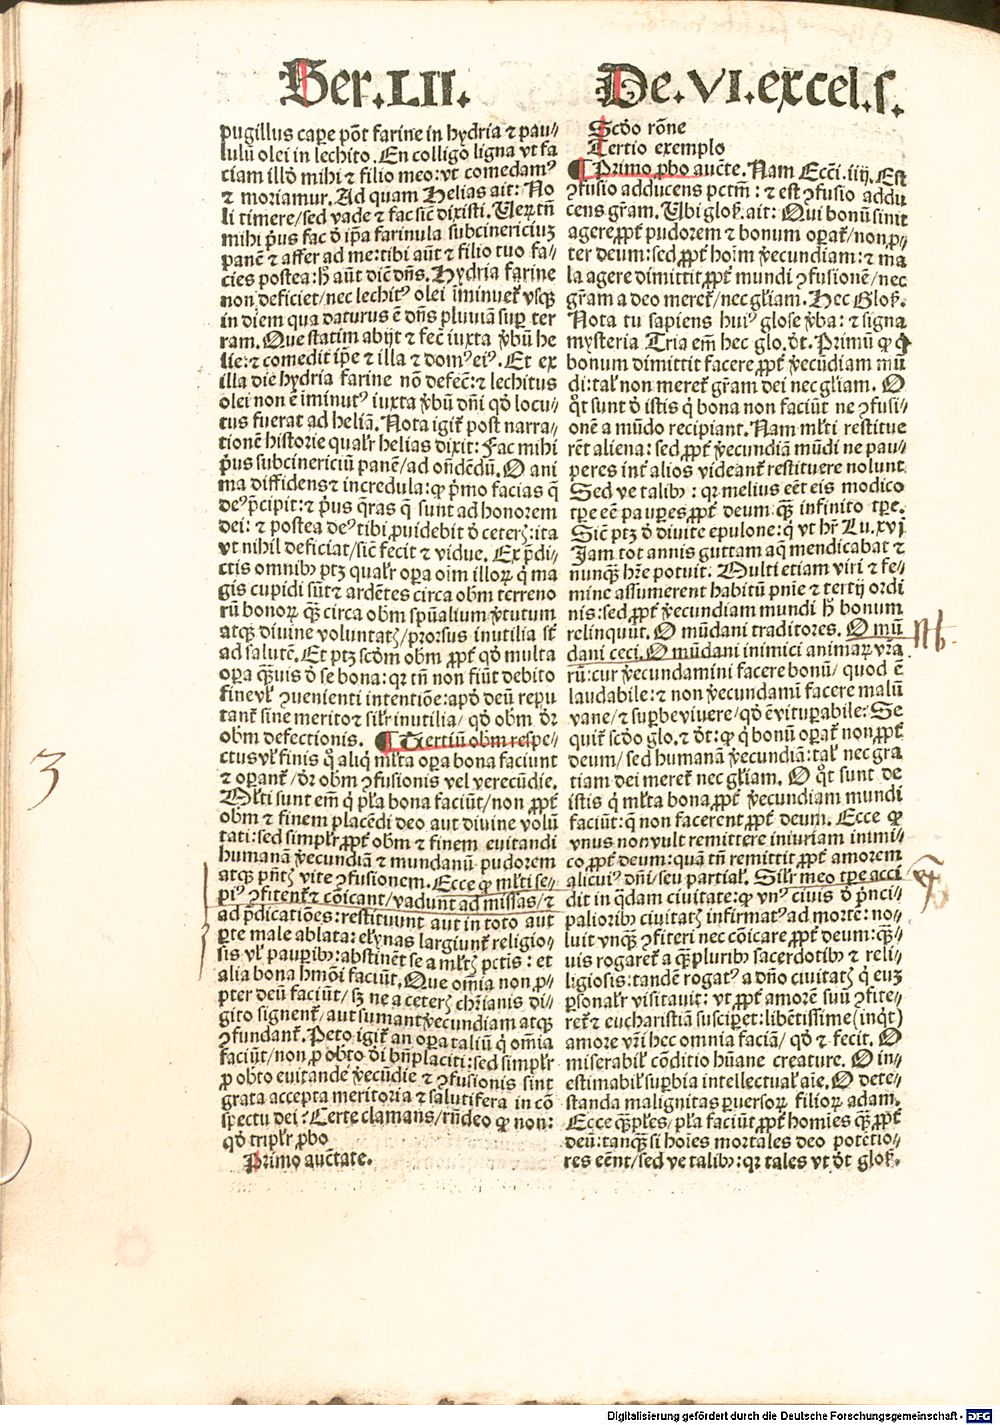 Ser.LII.
De.VI.excel.s.
pugillus capere põt farine in hydria ⁊ pau//
lulũ olei in lechito. En colligo ligna vt fa
ciam illð mihi ⁊ filio meo: vt comedamꝰ
⁊ moriamur. Ad quam Helias ait: No
li timere/sed vade ⁊ fac sic̃ dixisti. Uerũtñ
mihi p̃us fac ð ip̃a farinula subcinericiuʒ
panẽ ⁊ affer ad me: tibi aũt ⁊ filio tuo fa//
cies postea: h̃ aũt dic̃ dñs. Hydria farine
non deficiet/nec lechitꝰ olei ĩminuet̃ vsqꝫ
in diem qua daturus ẽ dñs pluuiã suꝑ ter
ram. Que statim abijt ⁊ fec̃ iuxta ṽbũ he
lie: ⁊ comedit ip̃e ⁊ illa ⁊ domꝰ eiꝰ. Et ex
illa die hydria farine nõ defec̃: ⁊ lechitus
olei non ẽ iminutꝰ iuxta ṽbũ dñi qð locu//
tus fuerat ad heliã. Nota igit̃ post narra//
tionẽ historie qualr̃ helias dixit: Fac mihi
p̃us subcinericiũ panẽ/ad oñdẽdũ. O ani
ma diffidens ⁊ incredula: ꝙ p̃mo facias q̃
deꝰ p̃cipit: ⁊ p̃us q̃ras q̃ sunt ad honorem
dei: ⁊ postea deꝰ tibi ꝓuidebit ð ceterꝭ: ita
vt nihil deficiat/sic̃ fecit ⁊ vidue. Ex p̃di//
ctis omnibꝰ ptꝫ qualr̃ oꝑa oĩm illoꝝ q̃ ma
gis cupidi sũt ⁊ ardẽtes circa obm terreno
rũ bonoꝝ qꝫ̃ circa obm spũalium ṽtutum
atqꝫ diuine voluntatꝭ/prorsus inutilia st̃
ad salutẽ. Et ptꝫ scðm obm ꝓpt̃ qð multa
oꝑa quis ð se bona: qꝛ tñ non fiũt debito
fine vl̃ ꝯuenienti intentiõe: apð deũ repu
tant̃ sine merito ⁊ silr̃ inutilia/ qð obm ðr̃
obm defectionis. ¶ Tertiũ obm respe//
ctus vl̃ finis q̃ aliq̃ ml̃ta oꝑa bona faciunt
⁊ oꝑant̃/ ðr̃ obm ꝯfusionis vel verecũdie.
Ml̃ti sunt em̃ q̃ pl̃a bona faciũt/non ꝓpt̃
obm ⁊ finem placẽdi deo aut diuine volũ
tati: sed simplr̃ ꝓpt̃ obm ⁊ finem euitandi
humanã ṽecundiã ⁊ mundanũ pudorem
atqꝫ pñtꝭ vite ꝯfusionem. Ecce ꝙ ml̃ti se//
piꝰ ꝯfitent̃ ⁊ cõicant/vadunt ad missas/⁊
ad p̃dicatiões: restituunt aut in toto aut
ꝑte male ablata: elynas largiunt̃ religio//
sis vl̃ pauꝑibꝰ: abstinẽt se a ml̃tꝭ pctis: et
alia bona hmõi faciũt. Que omĩa non ꝓ//
pter deũ faciũt/ sꝫ ne a ceterꝭ chr̃ianis di//
gito signent̃/ aut sumant ṽecundiam atqꝫ
ꝯfundant̃. Peto igit̃ an oꝑa taliũ q̃ omĩa
faciũt/non ꝓ obto ði bñplaciti: sed simplr̃
ꝓ obto euitande ṽecũdie ⁊ ꝯfusionis sint
grata accepta meritoria ⁊ salutifera in cõ
spectu dei? Certe clamans/rñdeo ꝙ non:
qð triplr̃ ꝓbo
Primo auc̃tate.
Scðo rõne
Tertio exemplo
¶ Primo ꝓbo auc̃te. Nam Ecc̃i. iiij. Est
ꝯfusio adducens pctm̃: ⁊ est ꝯfusio addu
cens gr̃am. Ubi glos̃. ait: Qui bonũ sinit
agere ꝓpt̃ pudorem ⁊ bonum oꝑat̃/non ꝓ//
ter deum: sed ꝓpt̃ hoĩm ṽecundiam: ⁊ ma
la agere dimittit ꝓpt̃ mundi ꝯfusionẽ/nec
gr̃am a deo meret̃/nec gl̃iam. Hec Glos̃.
Nota tu sapiens huiꝰ glose ṽba: ⁊ signa
mysteria Tria em̃ hec glo. ðt. Primũ ꝙ q̃
bonum dimittit facere ꝓpt̃ ṽecũdiam mũ
di: tal̃ non meret̃ gr̃am dei nec gl̃iam. O
q̃t sunt ð istis q̃ bona non faciũt ne ꝯfusi//
onẽ a mũdo recipiant. Nam ml̃ti restitue
rẽt aliena: sed ꝓpt̃ ṽecundiã mũdi ne pau//
peres int̃ alios videant̃ restituere nolunt
Sed ve talibꝰ: qꝛ melius eẽt eis modico
tꝑe eẽ pauꝑes ꝓpt̃ deum qꝫ̃ infinito tꝑe.
Sic̃ ptꝫ ð diuite epulone: q̃ vt hr̃ Lu. xvj
Jam tot annis guttam aq̃ mendicabat ⁊
nunqꝫ̃ hr̃e potuit. Multi etiam viri ⁊ fe//
mine assumerent habitũ pñie ⁊ tertij ordi
nis: sed ꝓpt̃ ṽecundiam mundi h̃ bonum
relinquũt. O mũdani traditores. O mũ
dani ceci. O mũdani inimici animaꝝ vr̃a
rũ: cur ṽecundamini facere bonũ/ quod ẽ
laudabile: ⁊ non ṽecundamĩ facere malũ
vane/ ⁊ suꝑbe viuere/ qð ẽ vituꝑabile: Se
quit̃ scðo glo. ⁊ ðt: ꝙ q̃ bonũ oꝑat̃ non ꝓpt̃
deum/ sed humanã ṽecundiã: tal̃ nec gra
tiam dei meret̃ nec gl̃iam. O q̃t sunt de
istis q̃ ml̃ta bona ꝓpt̃ ṽecundiam mundi
faciũt: q̃ non facerent ꝓpt̃ deum. Ecce ꝙ
vnus non vult remittere iniuriam inimi//
co ꝓpt̃ deum: quã tñ remittit ꝓpt̃ amorem
alicuiꝰ dñi/ seu partial̃. Silr̃ meo tꝑe acci
dit in q̃dam ciuitate: ꝙ vnꝰ ciuis ð p̃nci//
palioribꝰ ciuitatꝭ infirmatꝰ ad mortẽ: no//
luit vnqꝫ̃ ꝯfiteri nec cõicare ꝓpt̃ deum: qꝫ̃//
uis rogaret̃ a qꝫ̃pluribꝰ sacerdotibꝰ ⁊ reli//
ligiosis: tandẽ rogatꝰ a dño ciuitatꝭ q̃ euʒ
ꝑsonalr̃ visitauit: vt ꝓpt̃ amorẽ suũ ꝯfite//
ret̃ ⁊ eucharistiã susciꝑet: libẽtissime (inq̃t)
amore vr̃i hec omnia faciã/ qð ⁊ fecit. O
miserabil̃ cõditio hũane creature. O in//
estimabil̃ suꝑbia intellectual̃ aĩe. O dete//
standa malignitas ꝑuersoꝝ filioꝝ adam.
Ecce qꝫ̃ples/ pl̃a faciũt ꝓpt̃ homĩes qꝫ̃ ꝓpt̃
deũ: tanqꝫ̃ si hoĩes mortales deo potẽtio//
res eẽnt/ sed ve talibꝰ: qꝛ tales vt ðt glos̃.
Nb.
3
Digitalisierung gefördert durch die Deutsche Forschungsgemeinschaft - DFG